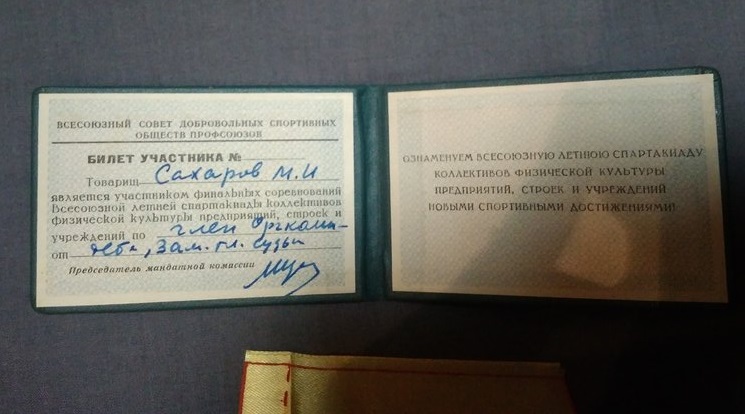 ВСЕСОЮЗНЫЙ СОВЕТ ДОБРОВОЛЬНЫХ СПОРТИВНЫХ
ОБЩЕСТВ ПРОФСОЮЗОВ
БИЛЕТ УЧАСТНИКА №
Товарищ Сахаров М.И
является участником финальных соревнований
Всесоюзной летней спартакиады коллективов
физической культуры предприятий, строек и
учреждений по член Оргкоми-
от тета, Зам. гл. судьи
Председатель мандатной комиссии
ОЗНАМЕНУЕМ ВСЕСОЮЗНУЮ ЛЕТНЮЮ СПАРТАКИАДУ
КОЛЛЕКТИВОВ ФИЗИЧЕСКОЙ КУЛЬТУРЫ
ПРЕДПРИЯТИЙ, СТРОЕК И УЧРЕЖДЕНИЙ
НОВЫМИ СПОРТИВНЫМИ ДОСТИЖЕНИЯМИ!